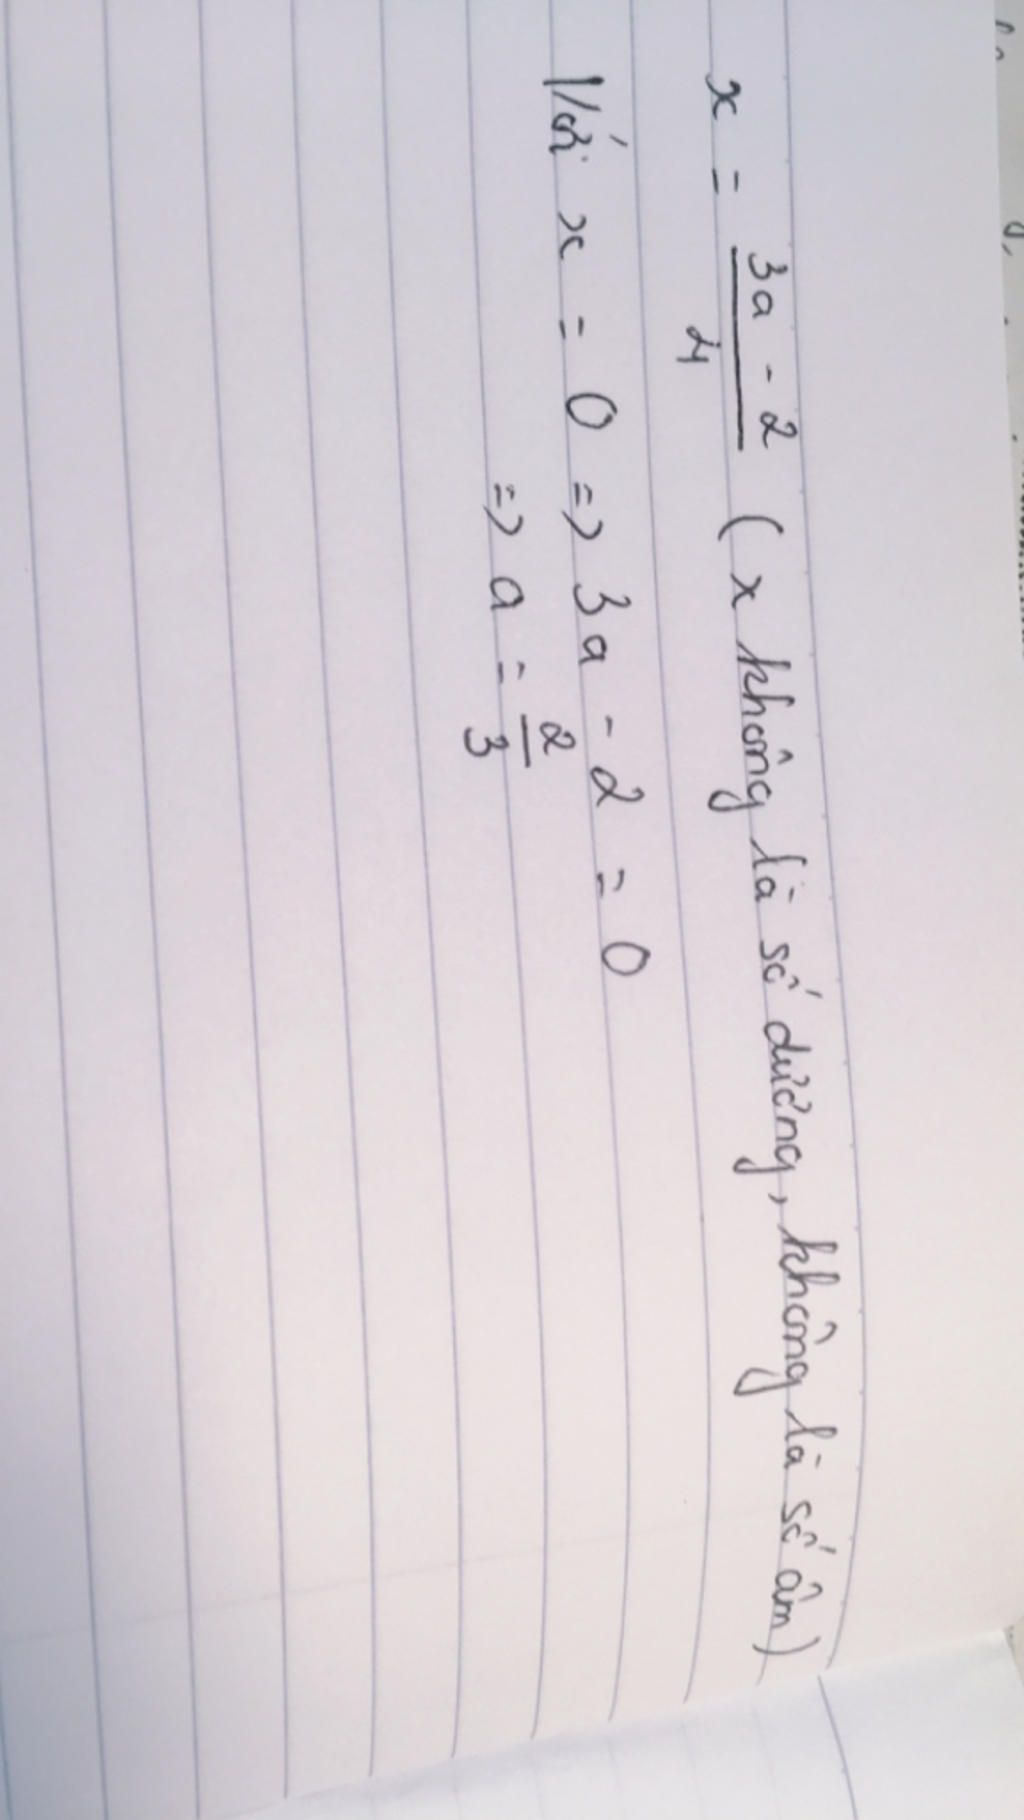 x = 3a - 2 / 4 ( x không là số dương, không là số âm)
Với x = 0 => 3a - 2 = 0
=> a = 2 / 3